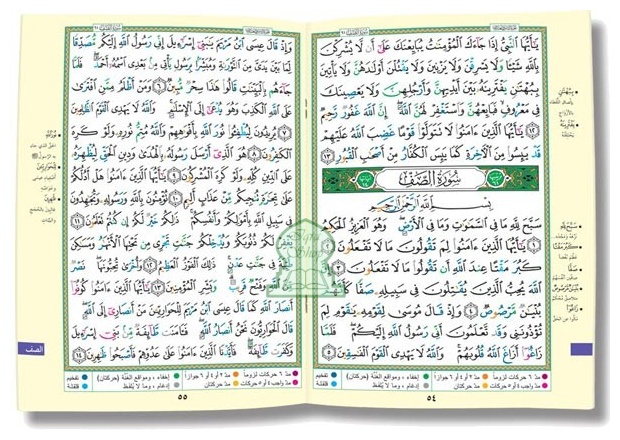 يَٰٓأَيُّهَا ٱلنَّبِىُّ إِذَا جَآءَكَ ٱلْمُؤْمِنَٰتُ يُبَايِعْنَكَ عَلَىٰٓ أَن لَّا يُشْرِكْنَ
بِٱللَّهِ شَيْـًٔا وَلَا يَسْرِقْنَ وَلَا يَزْنِينَ وَلَا يَقْتُلْنَ أَوْلَٰدَهُنَّ وَلَا يَأْتِينَ
بِبُهْتَٰنٍ يَفْتَرِينَهُۥ بَيْنَ أَيْدِيهِنَّ وَأَرْجُلِهِنَّ وَلَا يَعْصِينَكَ
فِى مَعْرُوفٍ فَبَايِعْهُنَّ وَٱسْتَغْفِرْ لَهُنَّ ٱللَّهَ إِنَّ ٱللَّهَ غَفُورٌ رَّحِيمٌ
١٢ يَٰٓأَيُّهَا ٱلَّذِينَ ءَامَنُوا۟ لَا تَتَوَلَّوْا۟ قَوْمًا غَضِبَ ٱللَّهُ عَلَيْهِمْ
قَدْ يَئِسُوا۟ مِنَ ٱلْءَاخِرَةِ كَمَا يَئِسَ ٱلْكُفَّارُ مِنْ أَصْحَٰبِ ٱلْقُبُورِ ١٣
سُورَةُ الصَّفِّ
بِسْمِ ٱللَّهِ ٱلرَّحْمَٰنِ ٱلرَّحِيمِ
سَبَّحَ لِلَّهِ مَا فِى ٱلسَّمَٰوَٰتِ وَمَا فِى ٱلْأَرْضِ وَهُوَ ٱلْعَزِيزُ ٱلْحَكِيمُ
١ يَٰٓأَيُّهَا ٱلَّذِينَ ءَامَنُوا۟ لِمَ تَقُولُونَ مَا لَا تَفْعَلُونَ ٢
كَبُرَ مَقْتًا عِندَ ٱللَّهِ أَن تَقُولُوا۟ مَا لَا تَفْعَلُونَ ٣ إِنَّ
ٱللَّهَ يُحِبُّ ٱلَّذِينَ يُقَٰتِلُونَ فِى سَبِيلِهِۦ صَفًّا كَأَنَّهُم
بُنْيَٰنٌ مَّرْصُوصٌ ٤ وَإِذْ قَالَ مُوسَىٰ لِقَوْمِهِۦ يَٰقَوْمِ لِمَ
تُؤْذُونَنِى وَقَد تَّعْلَمُونَ أَنِّى رَسُولُ ٱللَّهِ إِلَيْكُمْ فَلَمَّا
زَاغُوٓا۟ أَزَاغَ ٱللَّهُ قُلُوبَهُمْ وَٱللَّهُ لَا يَهْدِى ٱلْقَوْمَ ٱلْفَٰسِقِينَ ٥
٥٤
وَإِذْ قَالَ عِيسَى ٱبْنُ مَرْيَمَ يَٰبَنِىٓ إِسْرَٰٓءِيلَ إِنِّى رَسُولُ ٱللَّهِ إِلَيْكُم مُّصَدِّقًا
لِّمَا بَيْنَ يَدَىَّ مِنَ ٱلتَّوْرَىٰةِ وَمُبَشِّرًۢا بِرَسُولٍ يَأْتِى مِنۢ بَعْدِى ٱسْمُهُۥٓ أَحْمَدُ فَلَمَّا
جَآءَهُم بِٱلْبَيِّنَٰتِ قَالُوا۟ هَٰذَا سِحْرٌ مُّبِينٌ ٦ وَمَنْ أَظْلَمُ مِمَّنِ ٱفْتَرَىٰ
عَلَى ٱللَّهِ ٱلْكَذِبَ وَهُوَ يُدْعَىٰٓ إِلَى ٱلْإِسْلَٰمِ وَٱللَّهُ لَا يَهْدِى ٱلْقَوْمَ ٱلظَّٰلِمِينَ
٧ يُرِيدُونَ لِيُطْفِـُٔوا۟ نُورَ ٱللَّهِ بِأَفْوَٰهِهِمْ وَٱللَّهُ مُتِمُّ نُورِهِۦ وَلَوْ كَرِهَ
ٱلْكَٰفِرُونَ ٨ هُوَ ٱلَّذِىٓ أَرْسَلَ رَسُولَهُۥ بِٱلْهُدَىٰ وَدِينِ ٱلْحَقِّ لِيُظْهِرَهُۥ
عَلَى ٱلدِّينِ كُلِّهِۦ وَلَوْ كَرِهَ ٱلْمُشْرِكُونَ ٩ يَٰٓأَيُّهَا ٱلَّذِينَ ءَامَنُوا۟ هَلْ أَدُلُّكُمْ
عَلَىٰ تِجَٰرَةٍ تُنجِيكُم مِّنْ عَذَابٍ أَلِيمٍ ١٠ تُؤْمِنُونَ بِٱللَّهِ وَرَسُولِهِۦ وَتُجَٰهِدُونَ
فِى سَبِيلِ ٱللَّهِ بِأَمْوَٰلِكُمْ وَأَنفُسِكُمْ ذَٰلِكُمْ خَيْرٌ لَّكُمْ إِن كُنتُمْ تَعْلَمُونَ ١١
يَغْفِرْ لَكُمْ ذُنُوبَكُمْ وَيُدْخِلْكُمْ جَنَّٰتٍ تَجْرِى مِن تَحْتِهَا ٱلْأَنْهَٰرُ وَمَسَٰكِنَ
طَيِّبَةً فِى جَنَّٰتِ عَدْنٍ ذَٰلِكَ ٱلْفَوْزُ ٱلْعَظِيمُ ١٢ وَأُخْرَىٰ تُحِبُّونَهَا نَصْرٌ
مِّنَ ٱللَّهِ وَفَتْحٌ قَرِيبٌ وَبَشِّرِ ٱلْمُؤْمِنِينَ ١٣ يَٰٓأَيُّهَا ٱلَّذِينَ ءَامَنُوا۟ كُونُوٓا۟
أَنصَارَ ٱللَّهِ كَمَا قَالَ عِيسَى ٱبْنُ مَرْيَمَ لِلْحَوَارِيِّۦنَ مَنْ أَنصَارِىٓ إِلَى ٱللَّهِ
قَالَ ٱلْحَوَارِيُّونَ نَحْنُ أَنصَارُ ٱللَّهِ فَـَٔامَنَت طَّآئِفَةٌ مِّنۢ بَنِىٓ إِسْرَٰٓءِيلَ
وَكَفَرَت طَّآئِفَةٌ فَأَيَّدْنَا ٱلَّذِينَ ءَامَنُوا۟ عَلَىٰ عَدُوِّهِمْ فَأَصْبَحُوا۟ ظَٰهِرِينَ ١٤
٥٥
الصف